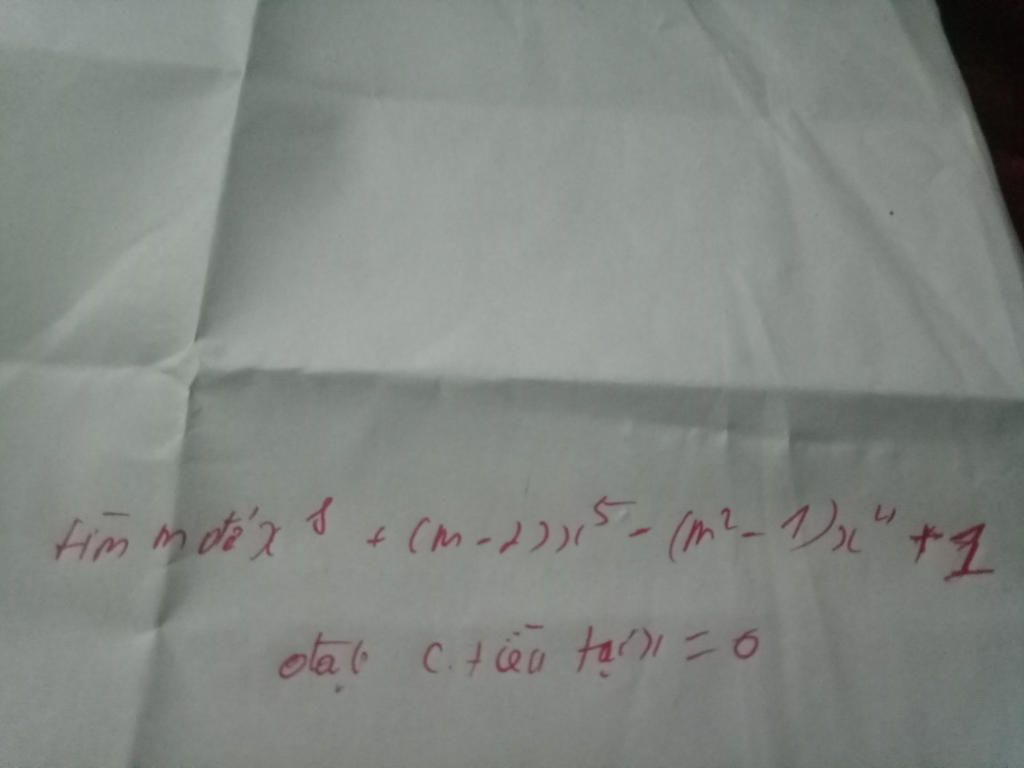 tìm m để x⁸ + (m-2)x⁵ - (m² - 1)x⁴ + 1
đạt c.tiểu tại x = 0